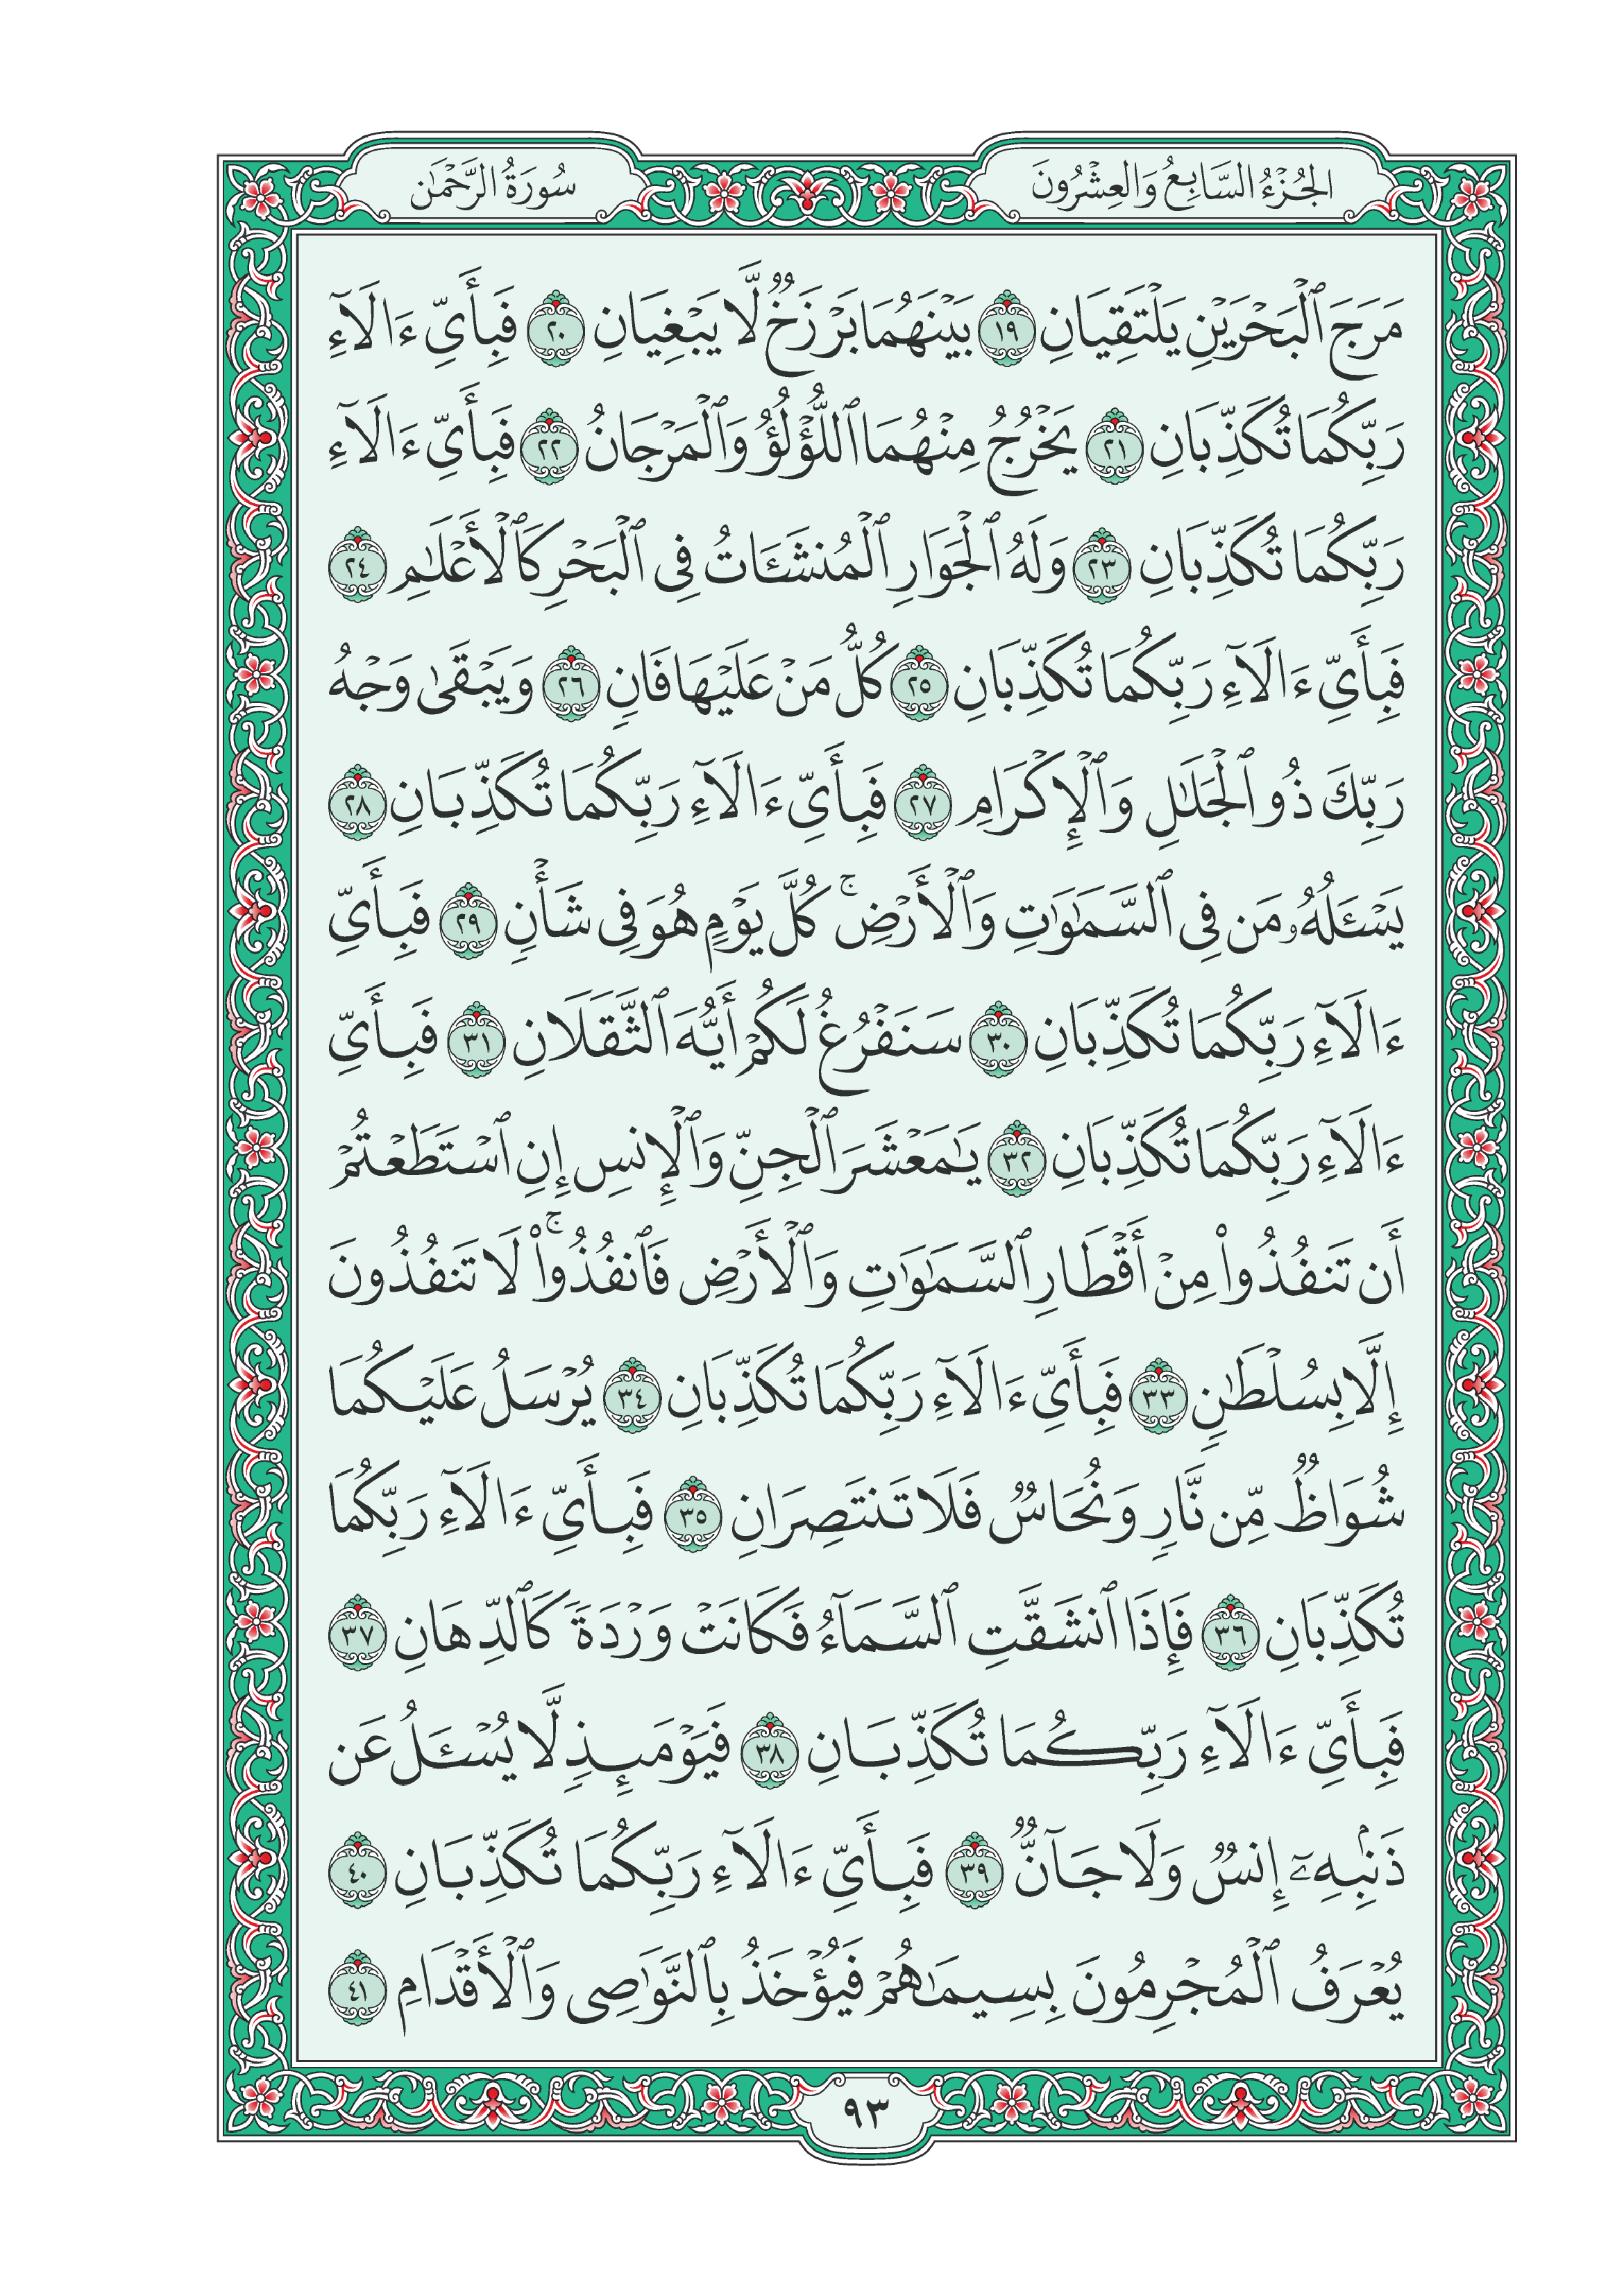 الجُزْءُ السَّابِعُ وَالعِشْرُونَ
سُورَةُ الرَّحْمَٰن
مَرَجَ ٱلْبَحْرَيْنِ يَلْتَقِيَانِ ١٩ بَيْنَهُمَا بَرْزَخٌ لَّا يَبْغِيَانِ ٢٠ فَبِأَيِّ ءَالَآءِ
رَبِّكُمَا تُكَذِّبَانِ ٢١ يَخْرُجُ مِنْهُمَا ٱللُّؤْلُؤُ وَٱلْمَرْجَانُ ٢٢ فَبِأَيِّ ءَالَآءِ
رَبِّكُمَا تُكَذِّبَانِ ٢٣ وَلَهُ ٱلْجَوَارِ ٱلْمُنشَـَٔاتُ فِى ٱلْبَحْرِ كَٱلْأَعْلَٰمِ ٢٤
فَبِأَيِّ ءَالَآءِ رَبِّكُمَا تُكَذِّبَانِ ٢٥ كُلُّ مَنْ عَلَيْهَا فَانٍ ٢٦ وَيَبْقَىٰ وَجْهُ
رَبِّكَ ذُو ٱلْجَلَٰلِ وَٱلْإِكْرَامِ ٢٧ فَبِأَيِّ ءَالَآءِ رَبِّكُمَا تُكَذِّبَانِ ٢٨
يَسْـَٔلُهُۥ مَن فِى ٱلسَّمَٰوَٰتِ وَٱلْأَرْضِ ۚ كُلَّ يَوْمٍ هُوَ فِى شَأْنٍ ٢٩ فَبِأَيِّ
ءَالَآءِ رَبِّكُمَا تُكَذِّبَانِ ٣٠ سَنَفْرُغُ لَكُمْ أَيُّهَ ٱلثَّقَلَانِ ٣١ فَبِأَيِّ
ءَالَآءِ رَبِّكُمَا تُكَذِّبَانِ ٣٢ يَٰمَعْشَرَ ٱلْجِنِّ وَٱلْإِنسِ إِنِ ٱسْتَطَعْتُمْ
أَن تَنفُذُوا۟ مِنْ أَقْطَارِ ٱلسَّمَٰوَٰتِ وَٱلْأَرْضِ فَٱنفُذُوا۟ ۚ لَا تَنفُذُونَ
إِلَّا بِسُلْطَٰنٍ ٣٣ فَبِأَيِّ ءَالَآءِ رَبِّكُمَا تُكَذِّبَانِ ٣٤ يُرْسَلُ عَلَيْكُمَا
شُوَاظٌ مِّن نَّارٍ وَنُحَاسٌ فَلَا تَنتَصِرَانِ ٣٥ فَبِأَيِّ ءَالَآءِ رَبِّكُمَا
تُكَذِّبَانِ ٣٦ فَإِذَا ٱنشَقَّتِ ٱلسَّمَآءُ فَكَانَتْ وَرْدَةً كَٱلدِّهَانِ ٣٧
فَبِأَيِّ ءَالَآءِ رَبِّكُمَا تُكَذِّبَانِ ٣٨ فَيَوْمَئِذٍ لَّا يُسْـَٔلُ عَن
ذَنۢبِهِۦٓ إِنسٌ وَلَا جَآنٌّ ٣٩ فَبِأَيِّ ءَالَآءِ رَبِّكُمَا تُكَذِّبَانِ ٤٠
يُعْرَفُ ٱلْمُجْرِمُونَ بِسِيمَٰهُمْ فَيُؤْخَذُ بِٱلنَّوَٰصِى وَٱلْأَقْدَامِ ٤١
٩٣